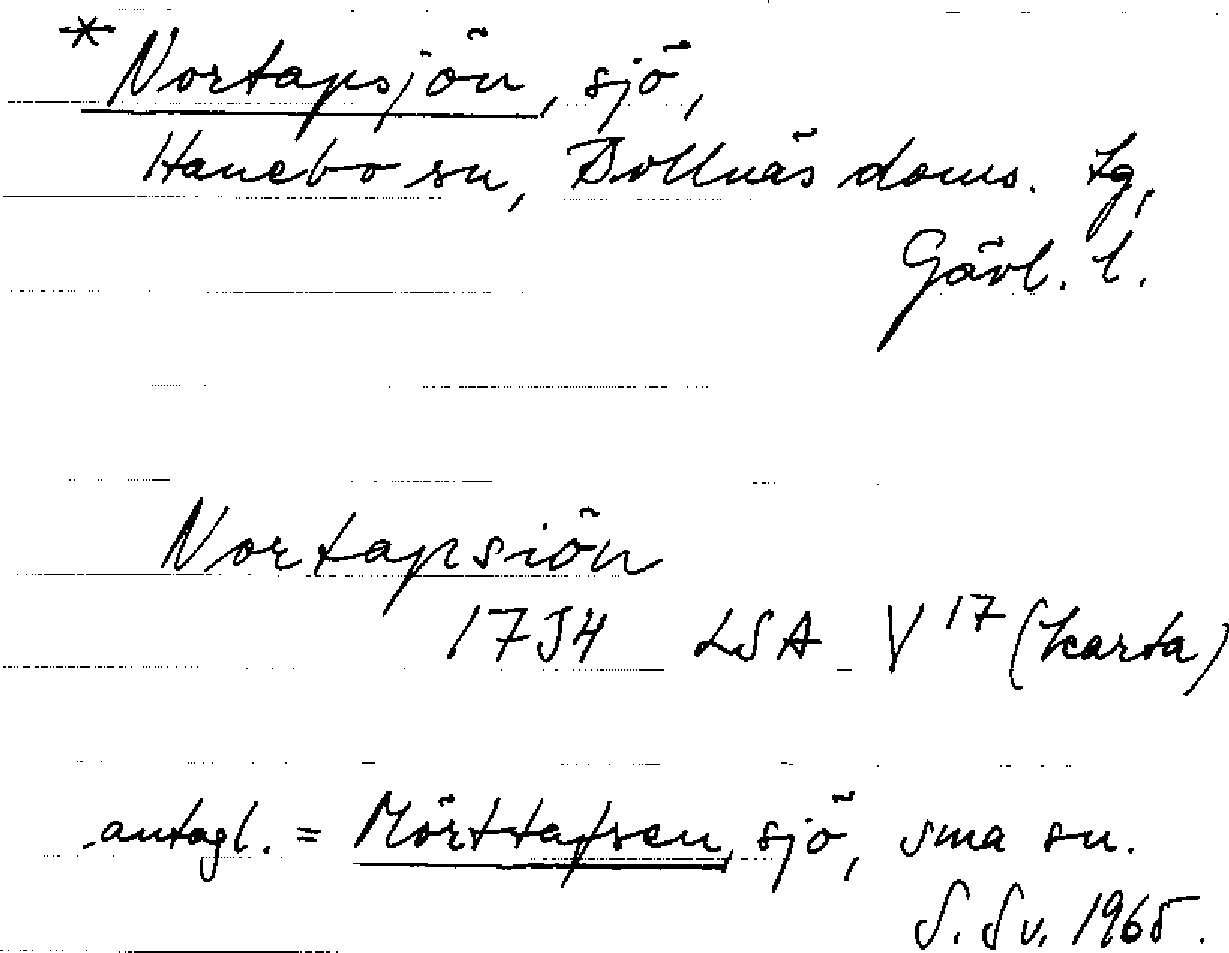 *Nortapsjön, sjö,
Hanebo sn, Bollnäs doms. tg,
Gävl. l.
Nortapsiön
1734 LSA V 17 (karta)
antagl. = Mörttafsen, sjö, sma sn.
S. Sv. 1965.